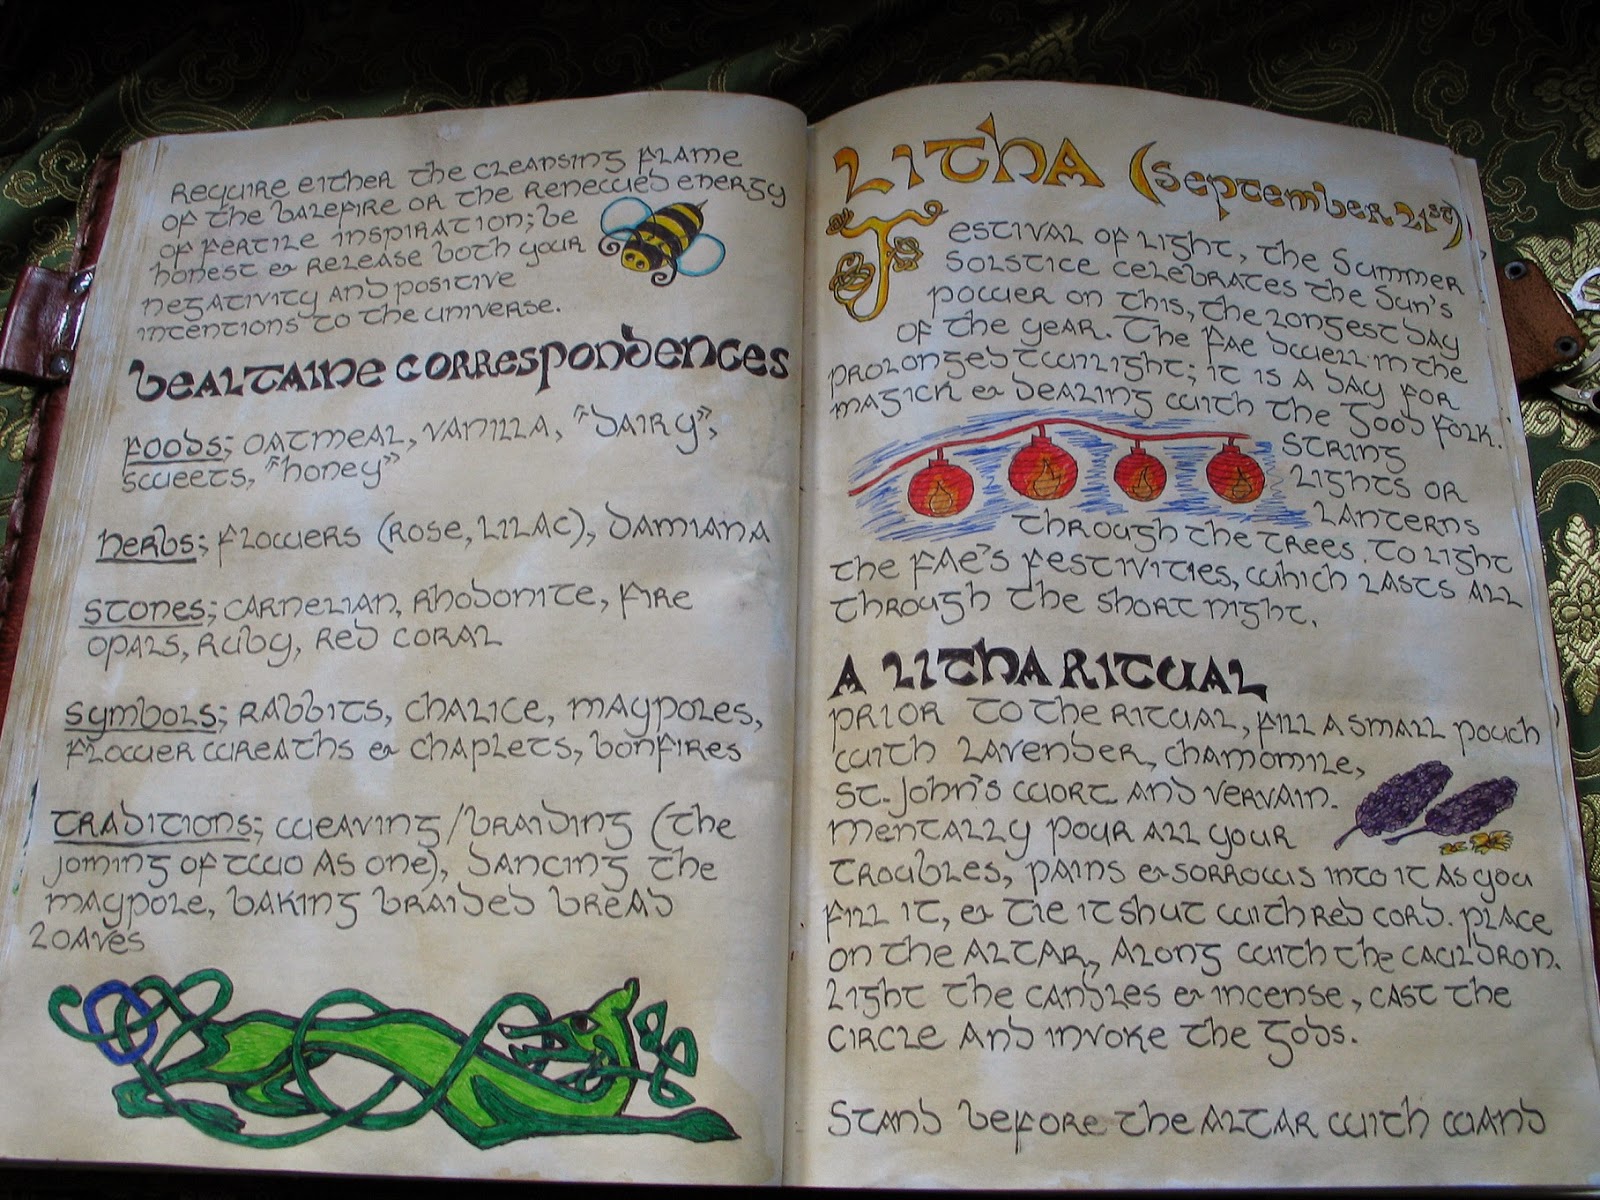 require either the cleansing flame
of the balefire or the renewed energy
of fertile inspiration; be
honest & release both your
negativity and positive
intentions to the universe.
Bealtaine Correspondences
Foods; oatmeal, vanilla, "dairy",
sweets, "honey"
Herbs; flowers (rose, lilac), damiana
Stones; carnelian, rhodonite, fire
opals, ruby, red coral
Symbols; rabbits, chalice, maypoles,
flower wreaths & chaplets, bonfires
Traditions; weaving/braiding (the
joining of two as one), dancing the
maypole, baking braided bread
loaves
Litha (September 21st)
Festival of light, the Summer
Solstice celebrates the Sun's
power on this, the longest day
of the year. The Fae dwell in the
prolonged twilight; it is a day for
magick & dealing with the Good Folk.
String
lights or
lanterns
through the trees. to light
the Fae's festivities, which lasts all
through the short night.
A Litha Ritual
Prior to the ritual, fill a small pouch
with lavender, chamomile,
St. John's Wort and vervain.
Mentally pour all your
troubles, pains & sorrows into it as you
fill it, & tie it shut with red cord. Place
on the altar, along with the cauldron.
Light the candles & incense, cast the
circle and invoke the Gods.
Stand before the altar with wand